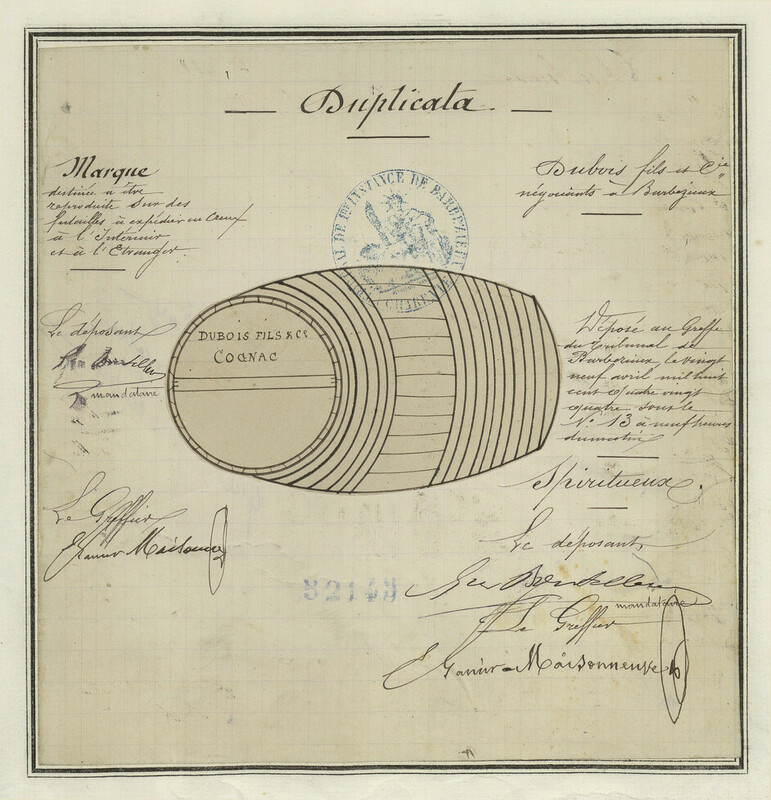 Duplicata
Marque
destinée à être
reproduite sur des
futailles à expédier en Creux
à l'Intérieur
et à l'Etranger
Dubois fils et Cie
négociants à Barbezieux
AL DE 1RE INSTANCE DE BARBEZIEUX
CHARENTE
DUBOIS FILS & Cº
COGNAC
Le déposant
mandataire
Déposé au Greffe
du Tribunal de
Barbezieux, le vingt
neuf avril mil huit
cent quatre vingt
quatre sous le
Nº 13 à neuf heures
du matin
Spiritueux.
Le Greffier
Ganier Maisonneuve
52149
Le déposant
mandataire
Le Greffier
Ganier-Maisonneuve